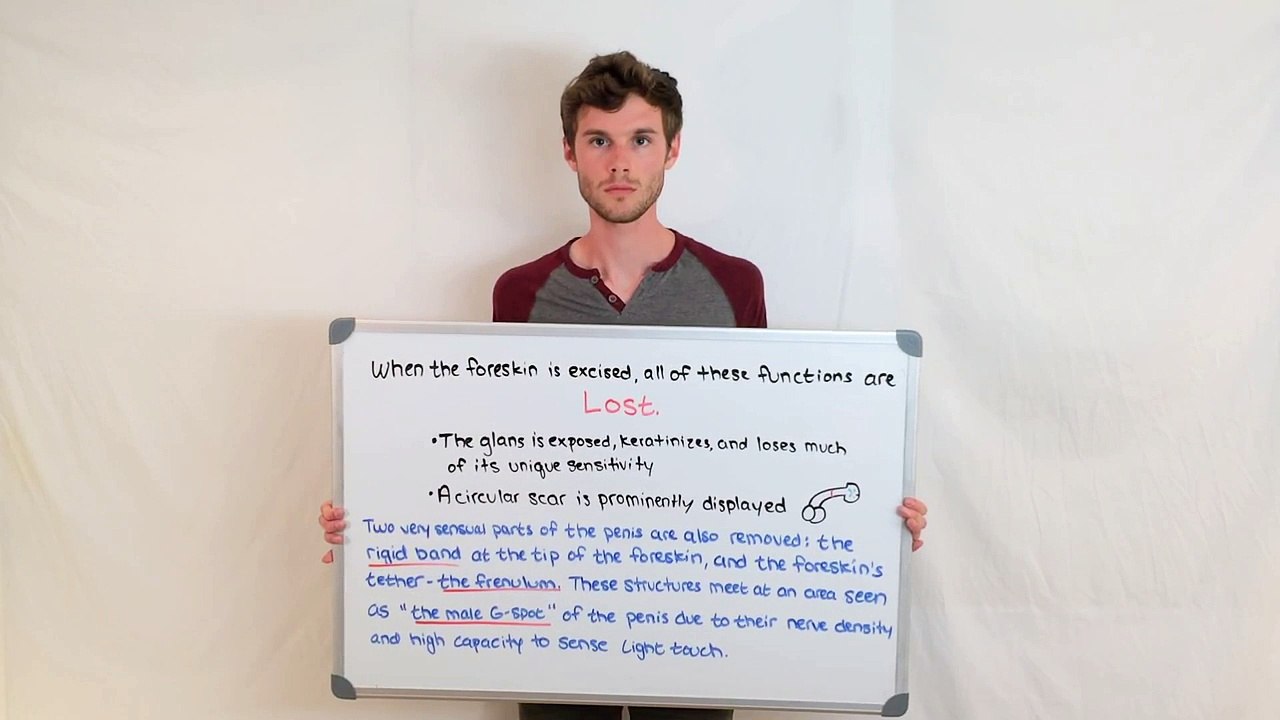 When the foreskin is excised, all of these functions are
Lost.
• The glans is exposed, keratinizes, and loses much
of its unique sensitivity
• A circular scar is prominently displayed
Two very sensual parts of the penis are also removed: the
rigid band at the tip of the foreskin, and the foreskin's
tether - the frenulum. These structures meet at an area seen
as "the male G-spot" of the penis due to their nerve density
and high capacity to sense light touch.